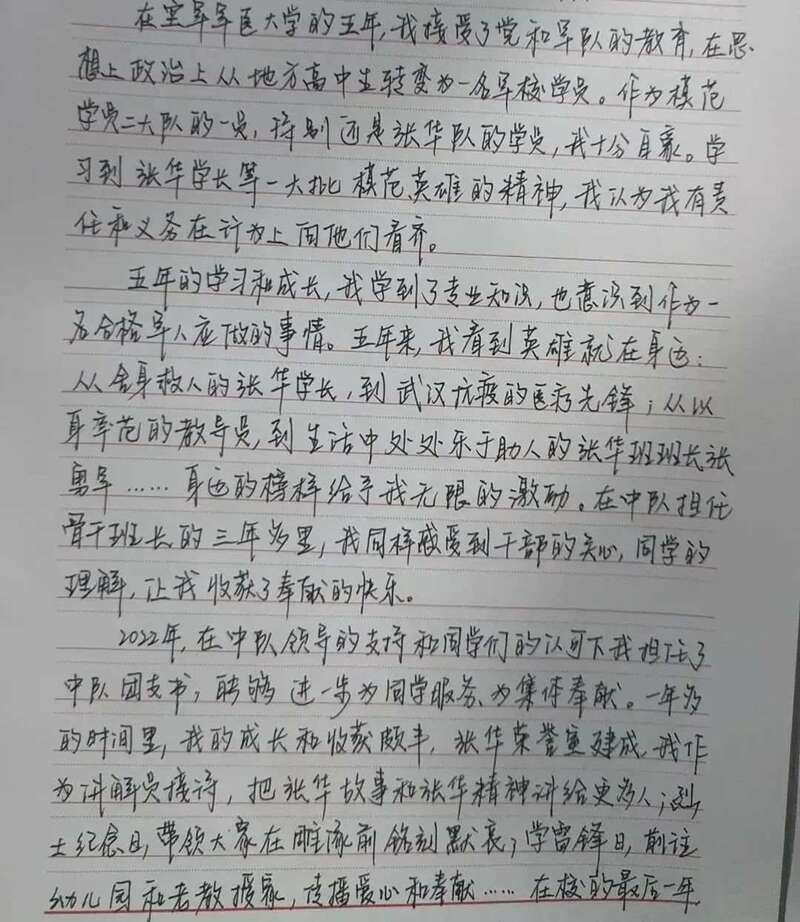 在空军军医大学的五年,我接受了党和军队的教育,在思
想上政治上从地方高中生转变为一名军校学员。作为模范
学员二大队的一员,特别还是张华队的学员,我十分自豪。学
习到张华学长等一大批模范英雄的精神,我认为我有责
任和义务在行为上向他们看齐。
五年的学习和成长,我学到了专业知识,也意识到作为一
名合格军人应做的事情。五年来,我看到英雄就在身边:
从舍身救人的张华学长,到武汉抗疫的医疗先锋;从以
身率范的教导员,到生活中处处乐于助人的张华班班长张
勇军……身边的榜样给予我无限的激励。在中队担任
骨干班长的三年多里,我同样感受到干部的关心,同学的
理解,让我收获了奉献的快乐。
2022年,在中队领导的支持和同学们的认可下我担任了
中队团支书,能够进一步为同学服务、为集体奉献。一年多
的时间里,我的成长和收获颇丰,张华荣誉室建成,我作
为讲解员接待,把张华故事和张华精神讲给更多人;烈
士纪念日,带领大家在雕像前铭刻默哀;学雷锋日,前往
幼儿园和老教授家,传播爱心和奉献……在校的最后一年